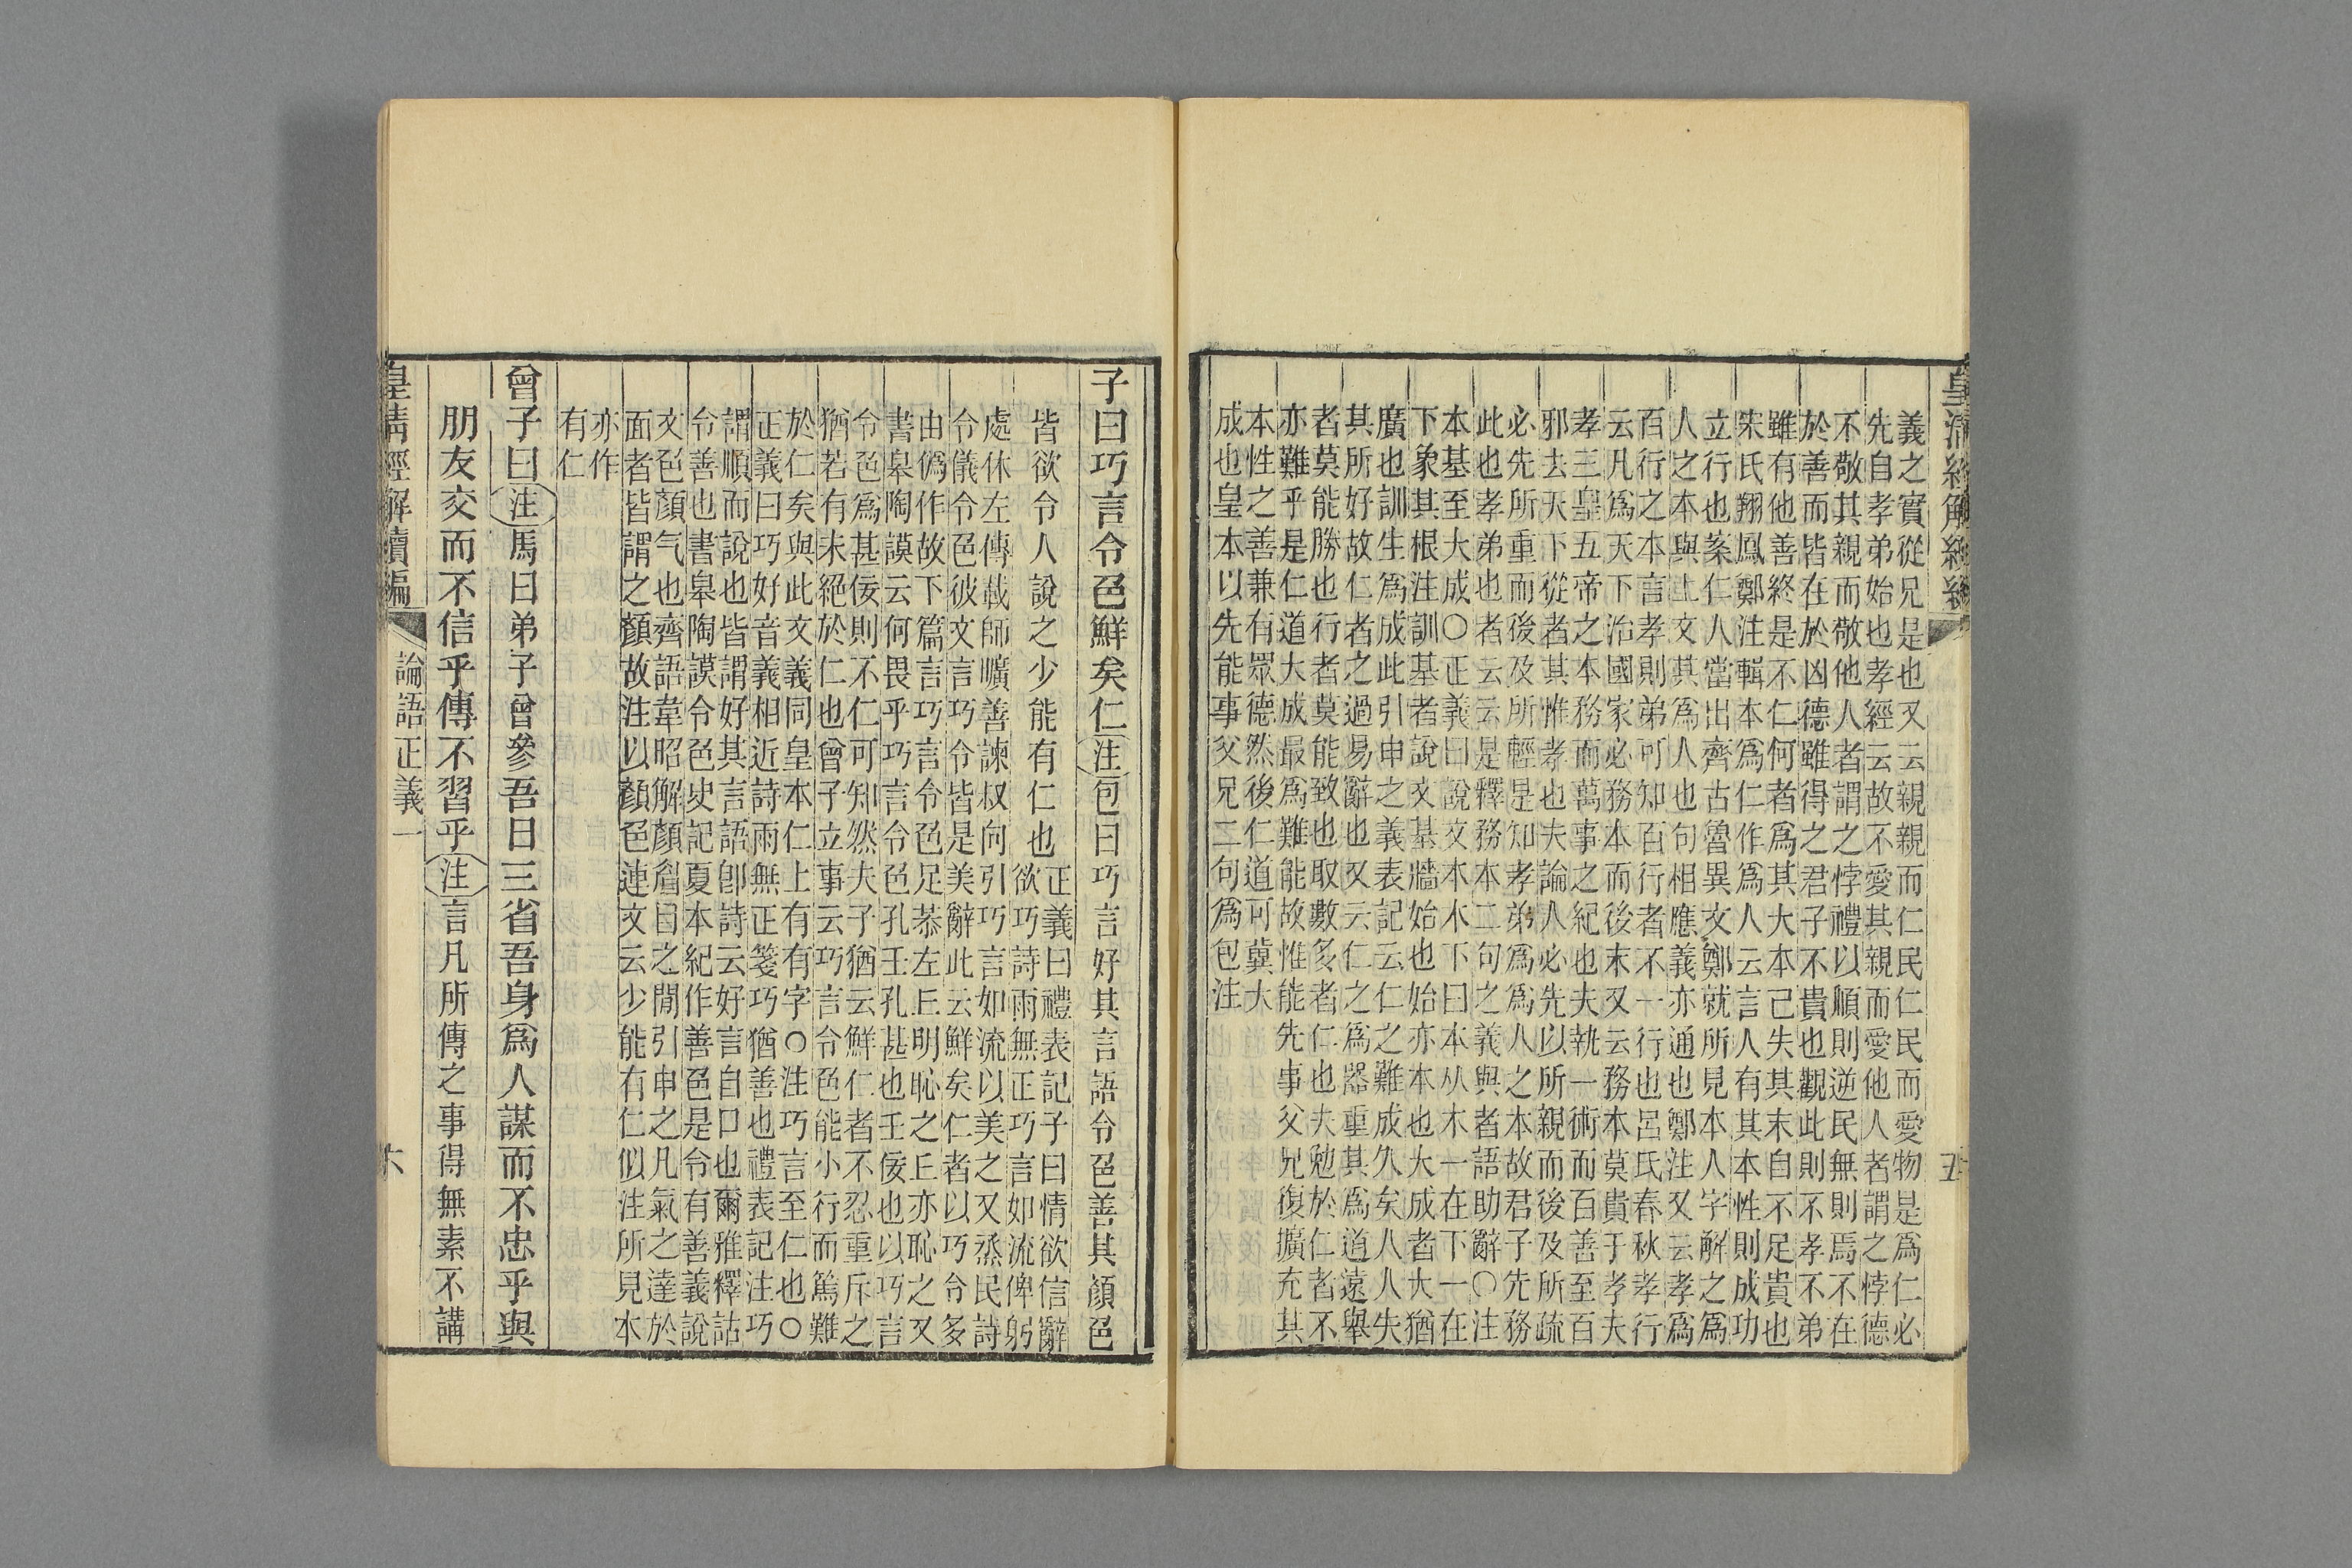 皇清經解續編
五
義之實從兄是也又云親親而仁民仁民而愛物是爲仁必
先自孝弟始也孝經云故不愛其親而愛他人者謂之悖德
不敬其親而敬他人者謂之悖禮以順則逆民無則焉不在
於善而皆在於凶德雖得之君子不貴也觀此則不孝不弟
雖有他善終是不仁何者爲其大本已失其末自不足貴也
宋氏翔鳳鄭注輯本爲仁作爲人云言人有其本性則成功
立行也案仁人當出齊古魯異文鄭就所見本人字解之爲
人之本與上文其爲人也句相應義亦通也鄭注又云孝爲
百行之本言孝則弟可知百行者不一行也呂氏春秋孝行
云凡爲天下治國家必務本而後末又云務本莫貴于孝夫
孝三皇五帝之本務而萬事之紀也夫執一術而百善至百
邪去天下從者其惟孝也夫論人必先以所親而後及所疏
必先所重而後及所輕是知孝弟爲爲人之本故君子先務
此也孝弟也者云云是釋務本二句之義與者語助辭○注
本基至大成○正義曰說文本木下曰本从木一在下一在
下象其根注訓基者說文基牆始也始亦本也大成者大猶
廣也訓生爲成此引申之義表記云仁之難成久矣人人失
其所好故仁者之過易辭也又云仁之爲器重其爲道遠舉
者莫能勝也行者莫能致也取數多者仁也夫勉於仁者不
亦難乎是仁道大成最爲難能故惟能先事父兄復擴充其
本性之善兼有眾德然後仁道可冀大
成也皇本以先能事父兄二句爲包注
子曰巧言令色鮮矣仁注包曰巧言好其言語令色善其顏色
皆欲令人說之少能有仁也
正義曰禮表記子曰情欲信辭
欲巧詩雨無正巧言如流俾躬
處休左傳載師曠善諫叔向引巧言如流以美之又烝民詩
令儀令色彼文言巧令皆是美辭此云鮮矣仁者以巧令多
由僞作故下篇言巧言令色足恭左丘明恥之丘亦恥之又
書皋陶謨云何畏乎巧言令色孔壬孔甚也壬佞也以巧言
令色爲甚佞則不仁可知然夫子猶云鮮仁者不忍重斥之
猶若有未絕於仁也曾子立事云巧言令色能小行而篤難
於仁矣與此文義同皇本仁上有有字○注巧言至仁也○
正義曰巧好音義相近詩雨無正箋巧猶善也禮表記注巧
謂順而說也皆謂好其言語卽詩云好言自口也爾雅釋詁
令善也書皋陶謨令色史記夏本紀作善色是令有善義說
文色顏气也齊語韋昭解顏眉目之閒引申之凡氣之達於
面者皆謂之顏故注以顏色連文云少能有仁似注所見本
亦作
有仁
曾子曰注馬曰弟子曾參吾日三省吾身爲人謀而不忠乎與
朋友交而不信乎傳不習乎注言凡所傳之事得無素不講
皇清經解續編
論語正義一
六